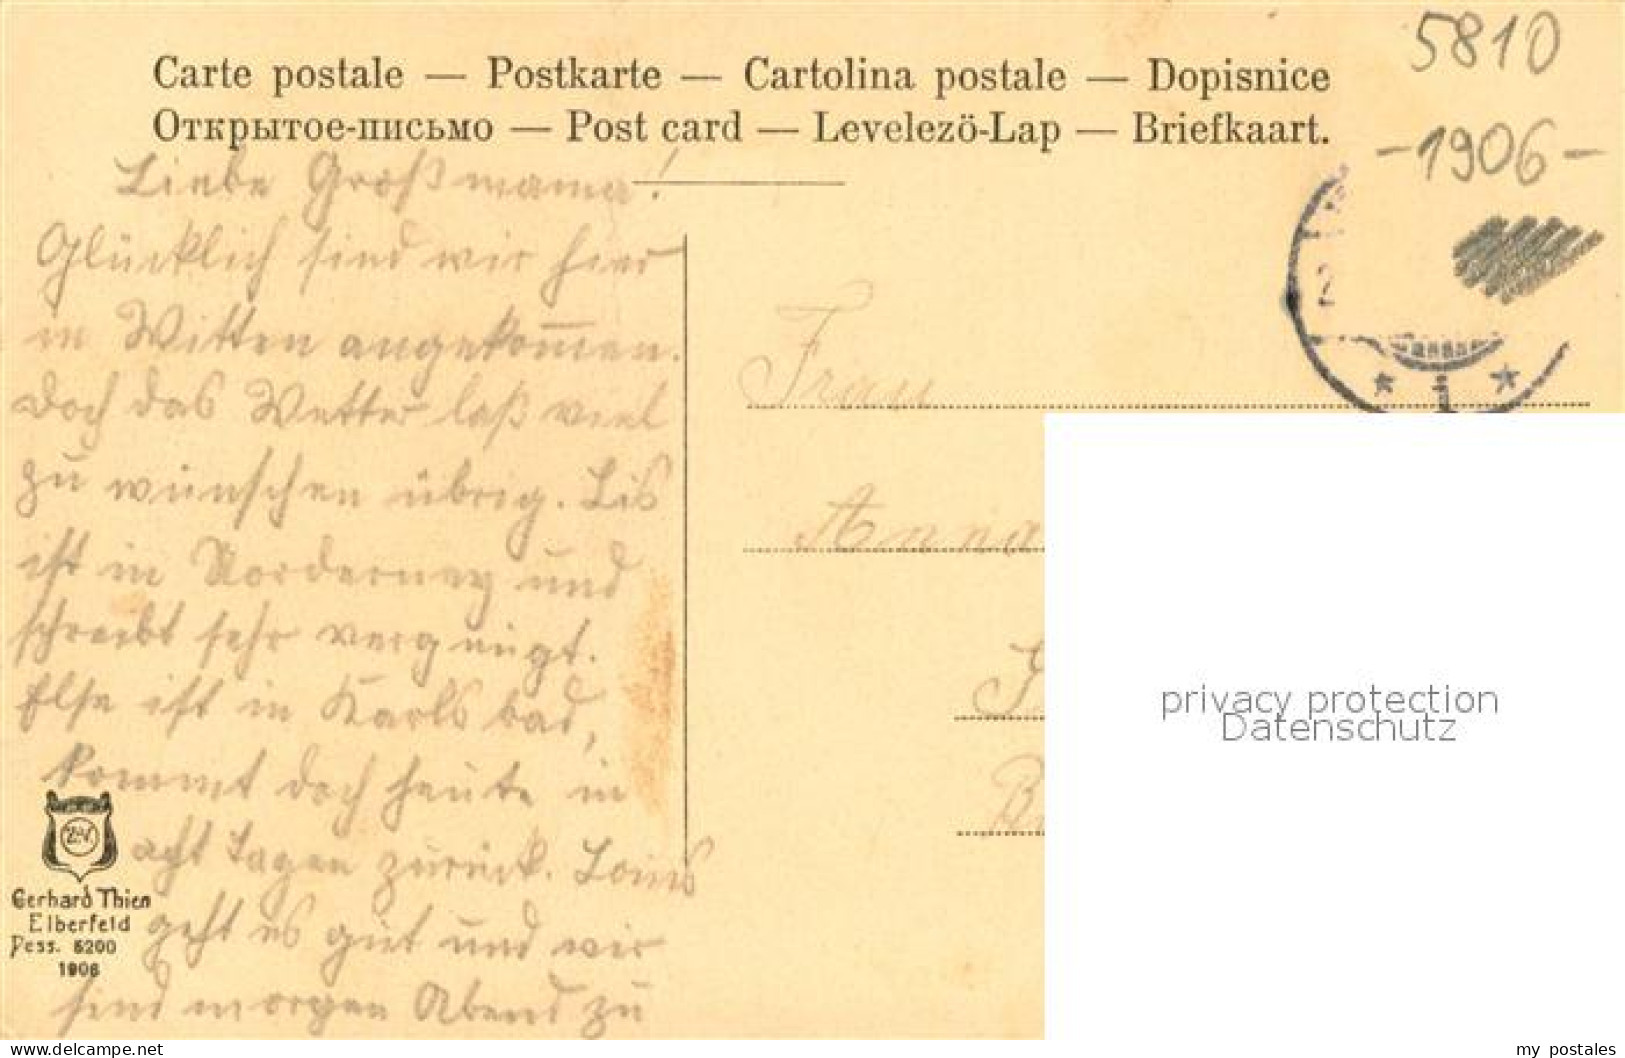 5810
Carte postale — Postkarte — Cartolina postale — Dopisnice
Открытое-письмо — Post card — Levelezö-Lap — Briefkaart.
-1906-
Liebe Großmama!
Glücklich sind wir hier
in Witten angekom̅en.
Doch das Wetter laß viel
zu wünschen übrig. Lis
ist in Norderney und
schreibt sehr vergnügt.
Else ist in Karlsbad,
kommt doch heute in
acht Tagen zurück. Louis
geht es gut und wir
sind morgen Abend zu
Frau
Anna
Gerhard Thien
Elberfeld
Dess. 6200
1906
privacy protection
Datenschutz
delcampe.net
my postales